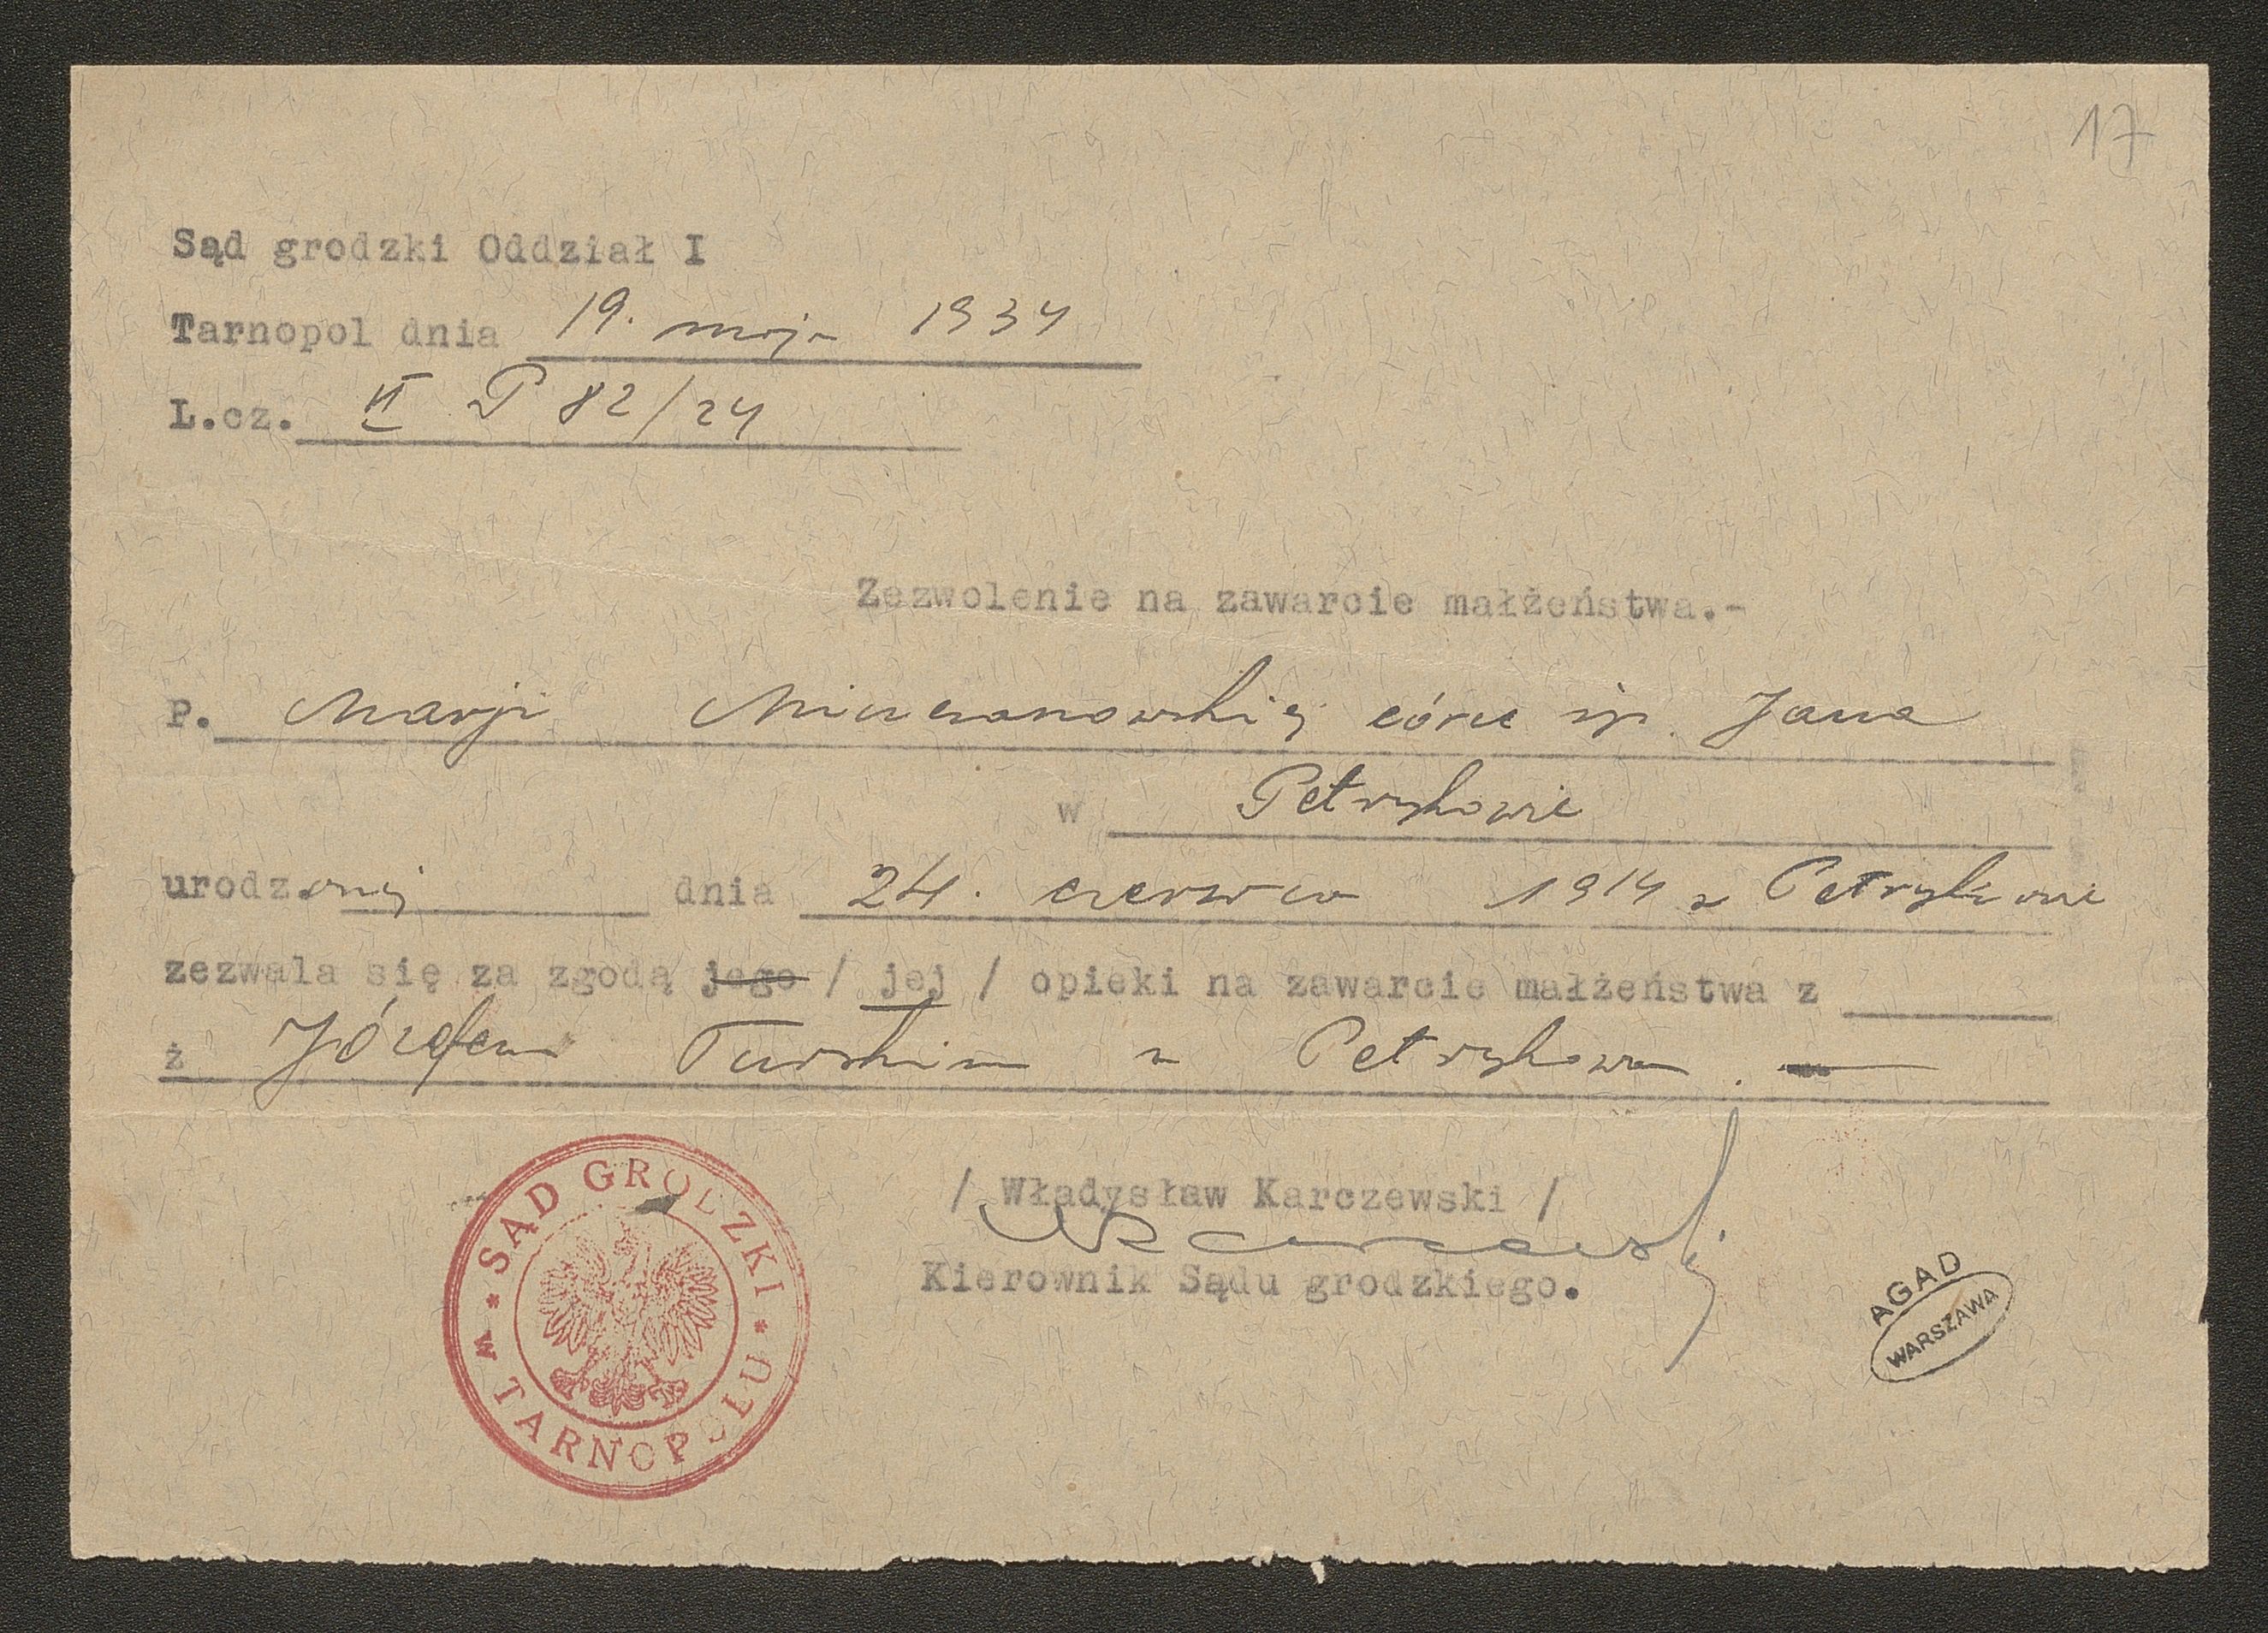 17
Sąd grodzki Oddział I
Tarnopol dnia 19. maja 1934
L.cz. II P 82/24
Zezwolenie na zawarcie małżeństwa.-
P. Marji córce śp. Jana
w Petrykowie
urodz.onej dnia 24. czerwca 1914 w Petrykowie
zezwala się za zgodą jego / jej / opieki na zawarcie małżeństwa z
z Józefem Turskim z Petrykowa. —
/ Władysław Karczewski /
Kierownik Sądu grodzkiego.
* SĄD GRODZKI *
W TARNOPOLU
AGAD
WARSZAWA